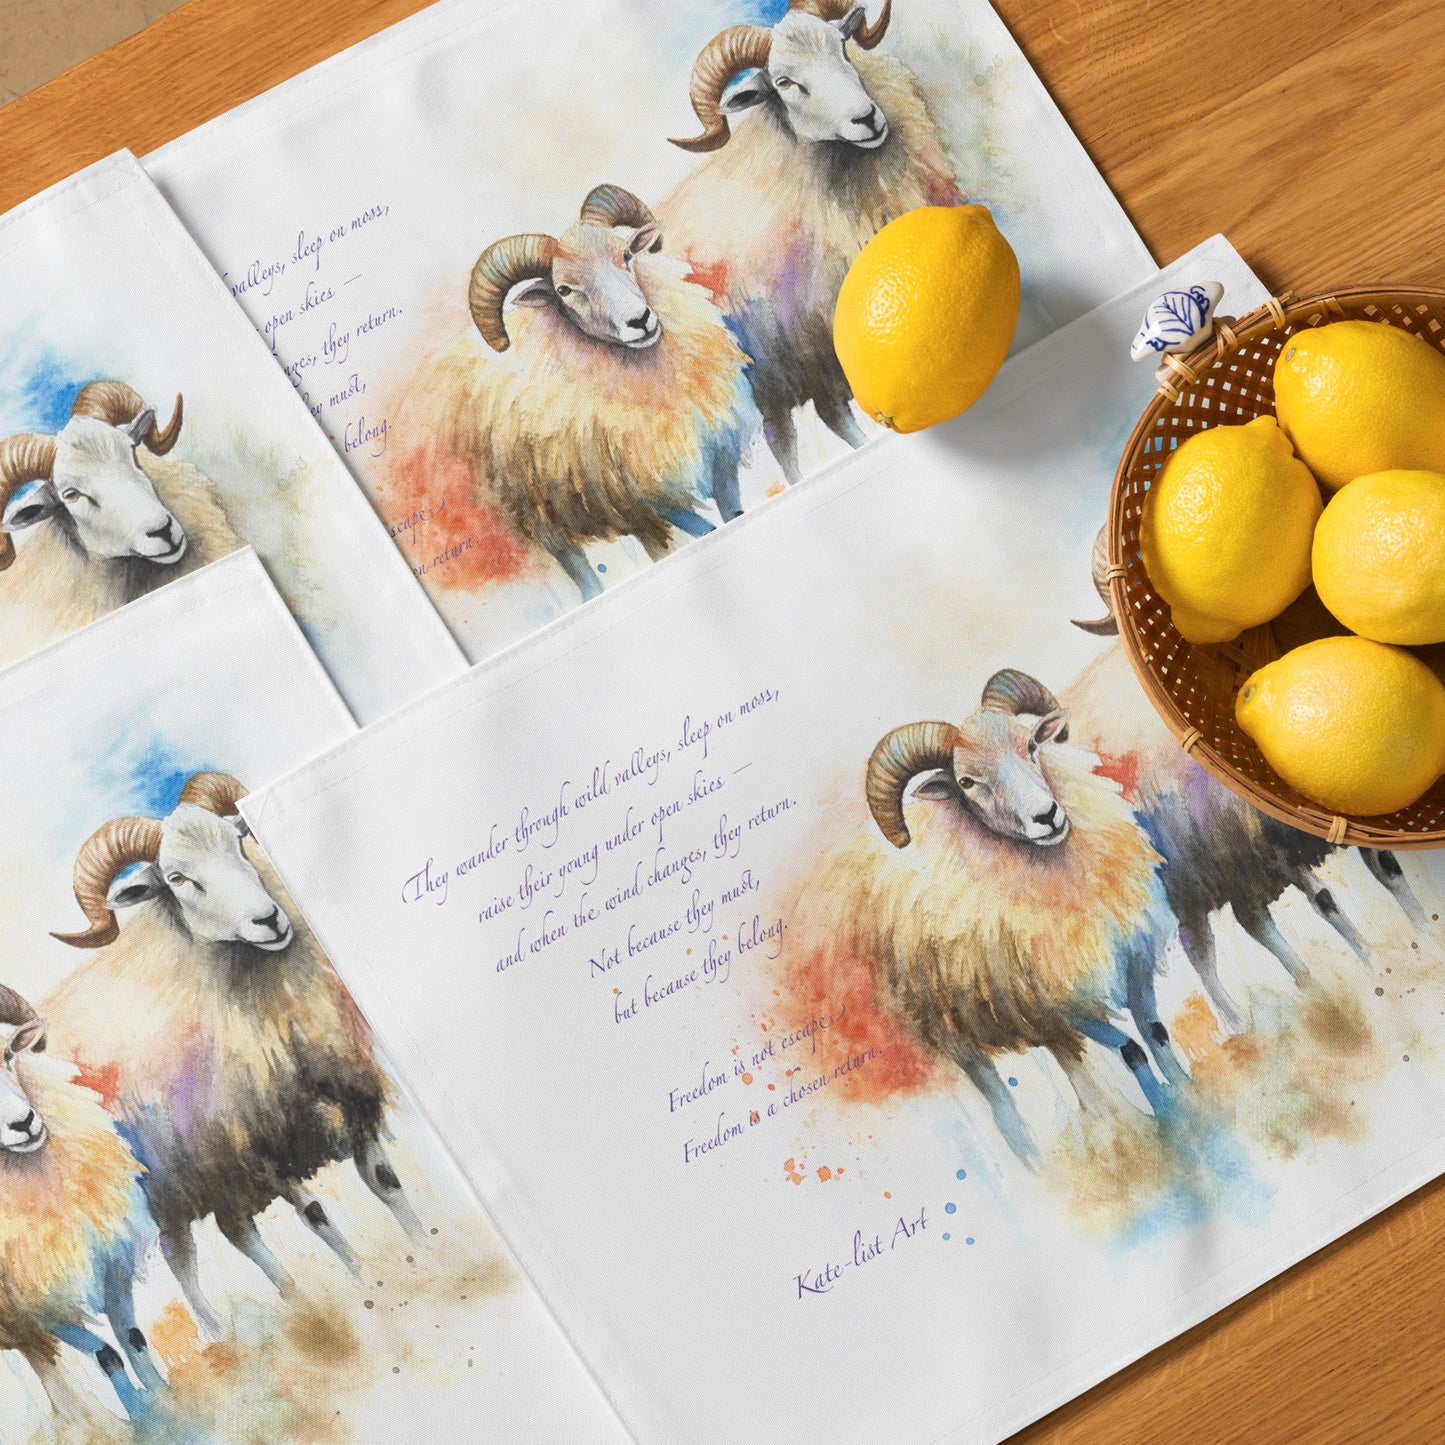 valleys, sleep on moss,
open skies —
they return.
must,
belong.
escape;
return.
They wander through wild valleys, sleep on moss,
raise their young under open skies —
and when the wind changes, they return.
Not because they must,
but because they belong.
Freedom is not escape;
Freedom is a chosen return.
Kate-list Art